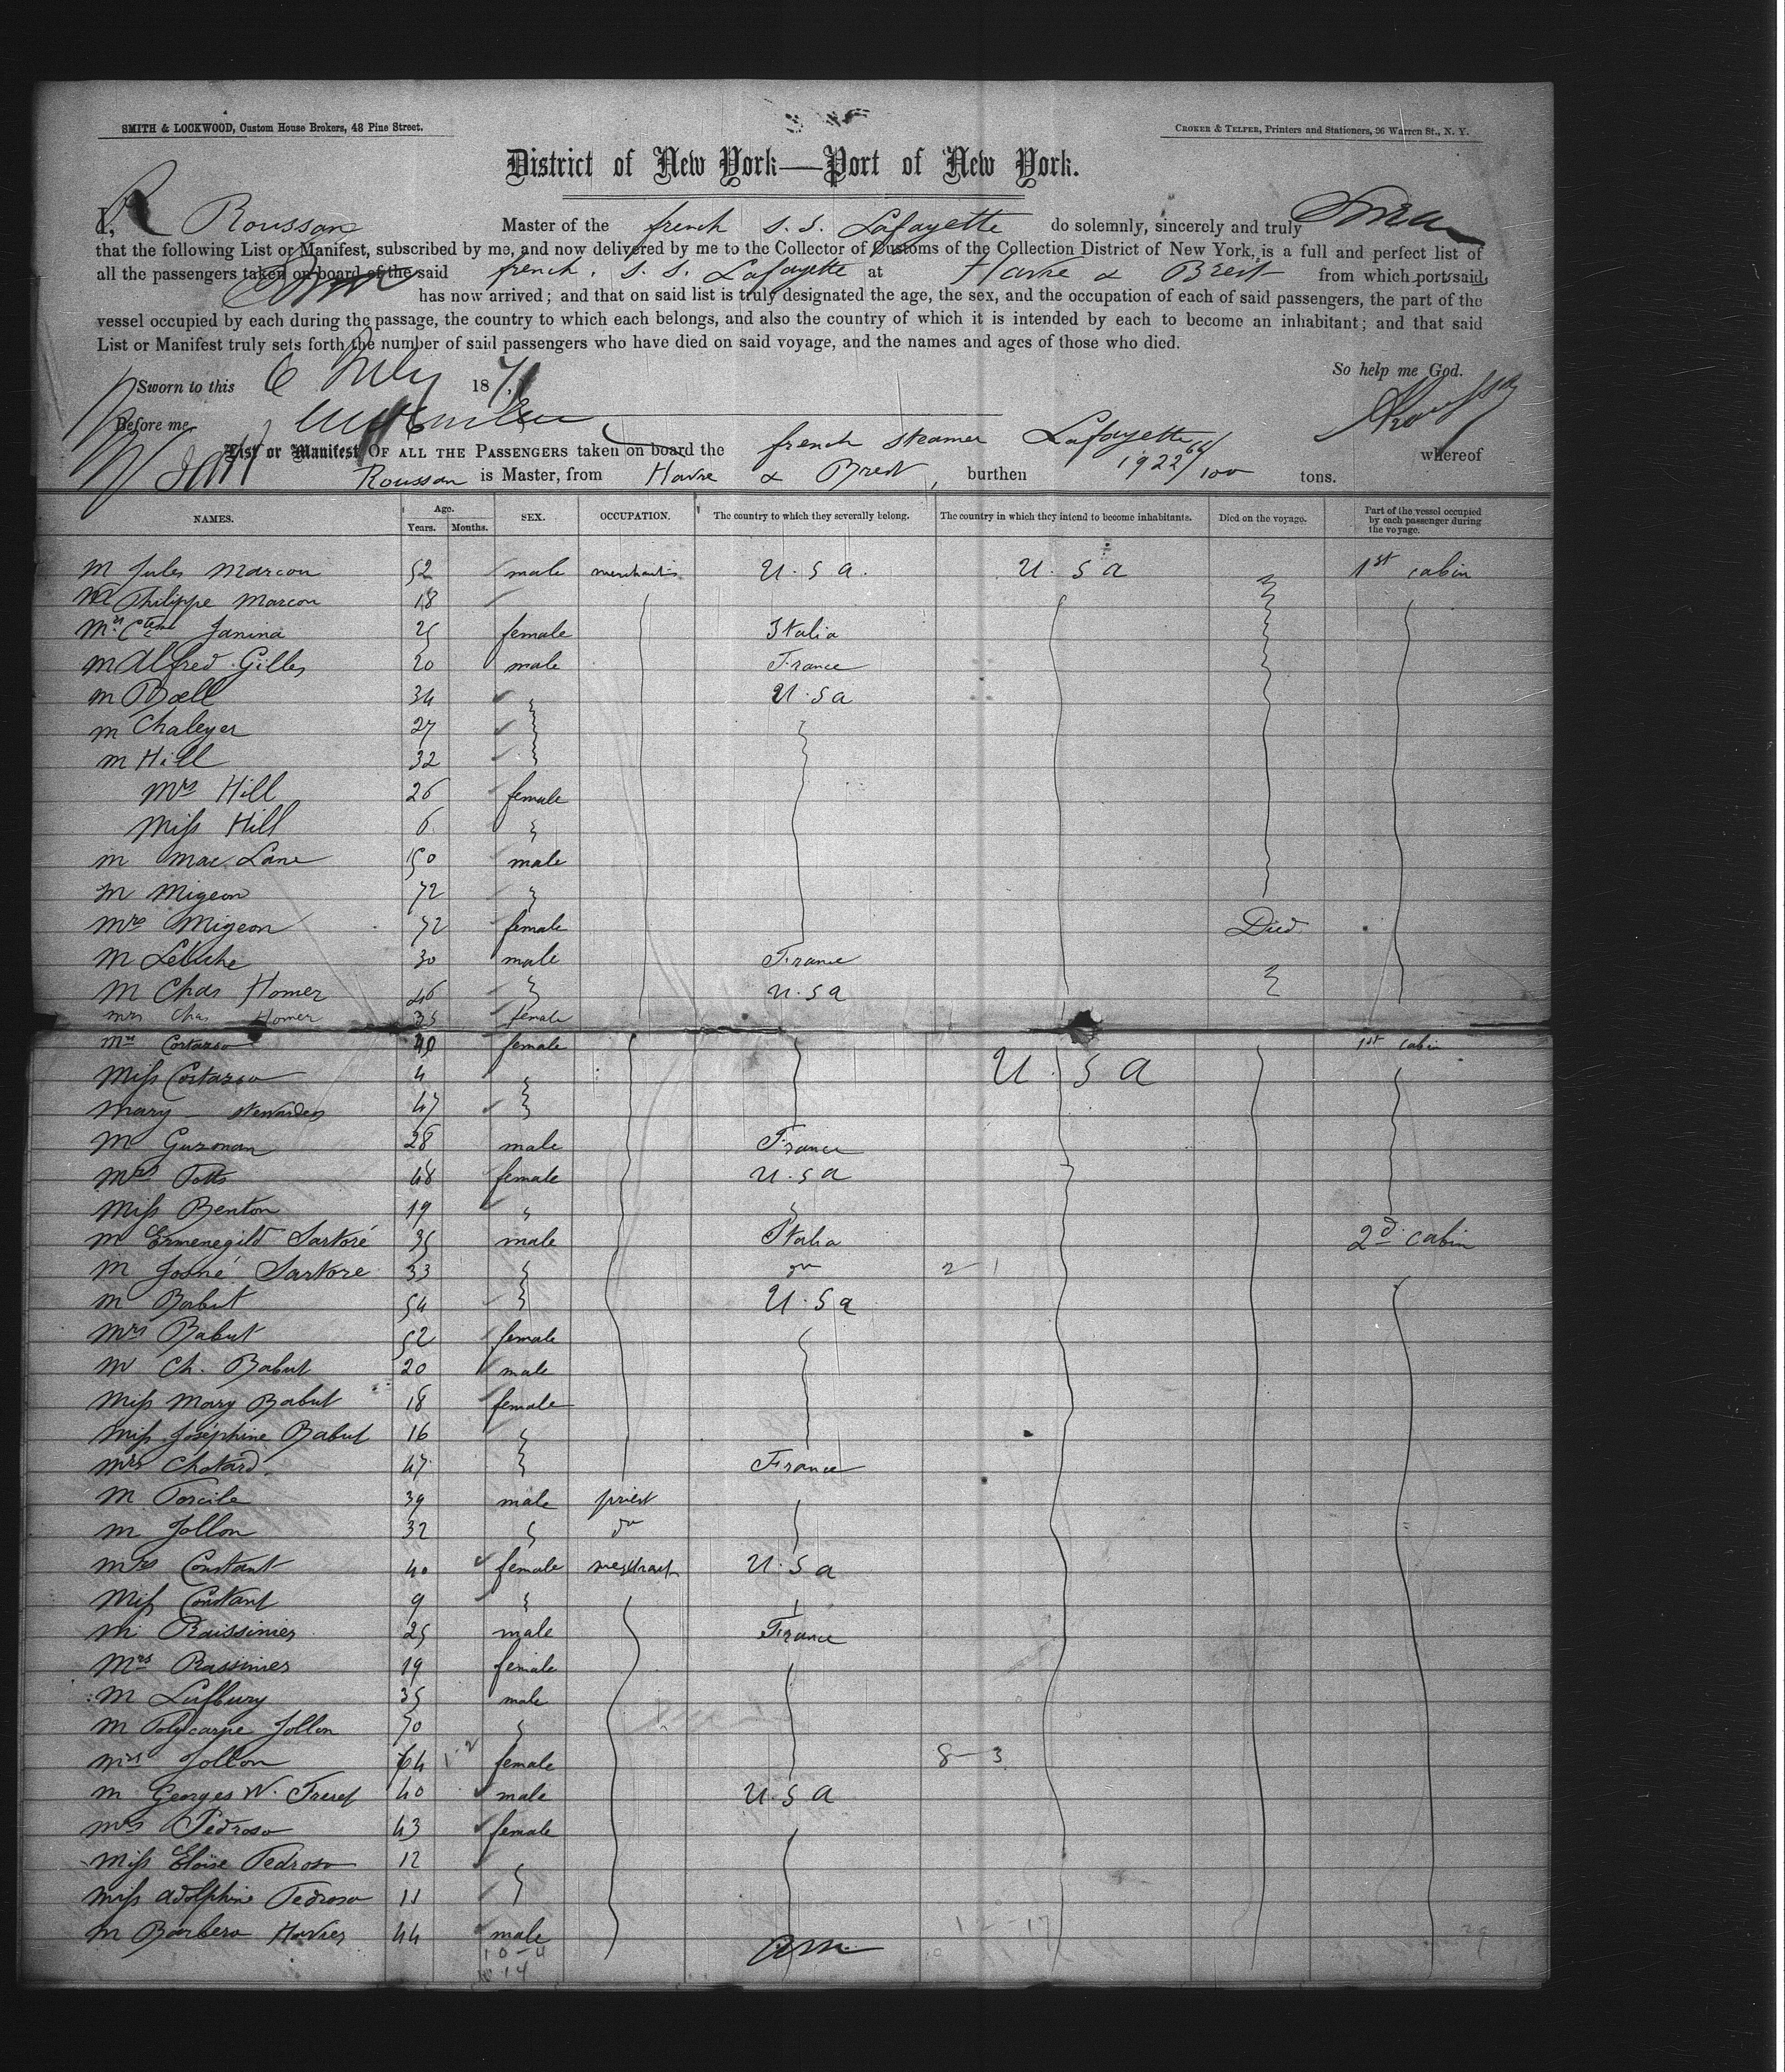 SMITH & LOCKWOOD, Custom House Brokers, 48 Pine Street.
CROKER & TELFER, Printers and Stationers, 96 Warren St., N. Y.
District of New York—Port of New York.
I, Roussan Master of the french S. S. Lafayette do solemnly, sincerely and truly Swear
that the following List or Manifest, subscribed by me, and now delivered by me to the Collector of Customs of the Collection District of New York, is a full and perfect list of
all the passengers taken on board of the said french. S. S. Lafayette at Havre & Brest from which port said
has now arrived; and that on said list is truly designated the age, the sex, and the occupation of each of said passengers, the part of the
vessel occupied by each during the passage, the country to which each belongs, and also the country of which it is intended by each to become an inhabitant; and that said
List or Manifest truly sets forth the number of said passengers who have died on said voyage, and the names and ages of those who died.
So help me God.
Sworn to this 6 July 1871
Before me
List or Manifest OF ALL THE PASSENGERS taken on board the french steamer Lafayette whereof
Roussan is Master, from Havre & Brest, burthen 1922 /100 tons.
NAMES. Age. Years. Months. SEX. OCCUPATION. The country to which they severally belong. The country in which they intend to become inhabitants. Died on the voyage. Part of the vessel occupied by each passenger during the voyage.
M Jules Marcou 52 male merchants U.S a. U.S a 1st cabin
M Philippe Marcou 18
Janina 25 female Italia
M Alfred Gilles 20 male France
M Bœll 34 U.S a
M Chaleyer 27
M Hill 32
Mrs Hill 26 female
Miss Hill 6
M Mac Lane 50 male
M Migeon 72
Mrs Migeon 72 female Died
M Lebiche 30 male France
M Chas Homer 46 U.S a
Mrs Chas Homer 35 female
Mrs Cortazso 40 female 1st cabin
Miss Cortazso 4 U.S a
Mary - stewardess 47
M Guzman 28 male France
Mrs Potts 48 female U.S a
Miss Benton 19
M Ermenegild Sartoré 35 male Italia 2d cabin
M Josné Sartoré 33 do 2 1
M Babut 54 U.S a
Mrs Babut 52 female
M Ch. Babut 20 male
Miss Mary Babut 18 female
Miss Joséphine Babut 16
Mrs Chotard. 47 France
M Torcile 39 male priest
M Jollon 32 do
Mrs Constant 40 female merchant U.S a
Miss Constant 9
M. Raissinier 25 male France
Mrs Rassinier 19 female
M Lufbury 35 male
M Polycarpe Jollon 70
Mrs Jollon 64 female 8-3
M Georges W. 40 male U.S a
Mrs Pedroso 43 female
Miss Eloïse Pedroso 12
Miss Adolphine Pedroso 11
M Barbero 44 male 1-17
10-4
14